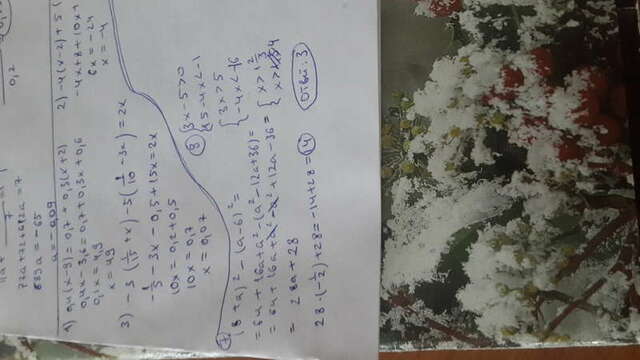 0,2
7
72a+32+612a=7
a=-0,09
1) 0,4(x-9)=0,7+0,3(x+2)
0,4x-3,6=0,7+0,3x+0,6
0,1x=4,9
x=49
2) -4(x-2)+5(
-4x+8+10x+
6x=-24
x=-4
3) -3(1/15+x)-5(1/10-3x)=2x
-1/5-3x-0,5+15x=2x
10x=0,2+0,5
10x=0,7
x=0,07
7 (8+a)²-(a-6)²=
=64+16a+a²-(a²-12a+36)=
=64+16a+a²-a²+12a-36=
=28a+28
28·(-1/2)+28=-14+28=14
8 {3x-5>0
{15-4x<-1
{3x>5
{-4x<-16
Ответ: 3